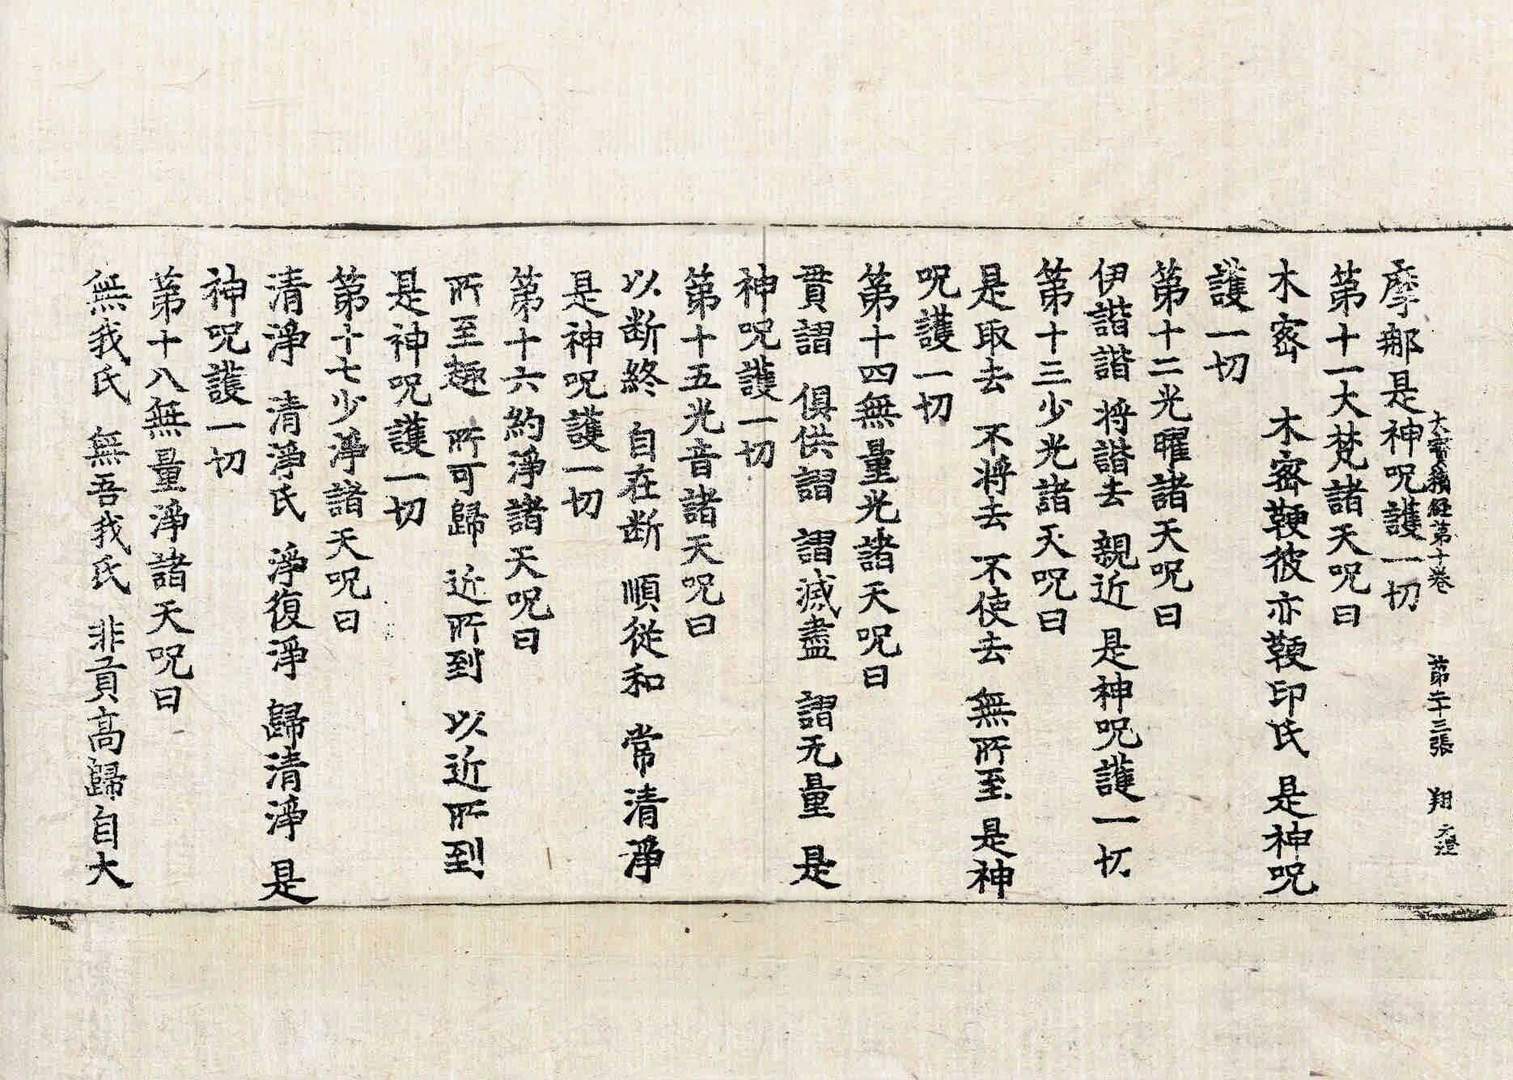 大寶積経第十卷　第二十三張　翔　元澄
摩那是神呪護一切
第十一大梵諸天呪曰
木宻　木宻鞕彼亦鞕印氏　是神呪
護一切
第十二光曜諸天呪曰
伊諧諧　将諧去　親近　是神呪護一切
第十三少光諸天呪曰
是取去　不将去　不使去　無所至　是神
呪護一切
第十四無量光諸天呪曰
貫謂　俱供謂　謂滅盡　謂无量　是
神呪護一切
第十五光音諸天呪曰
以断終　自在断　順從和　常清淨
是神呪護一切
第十六約淨諸天呪曰
所至趣　所可歸　近所到　以近所到
是神呪護一切
第十七少淨諸天呪曰
清淨　清淨氏　淨復淨　歸清淨　是
神呪護一切
第十八無量淨諸天呪曰
無我氏　無吾我氏　非貢高歸自大